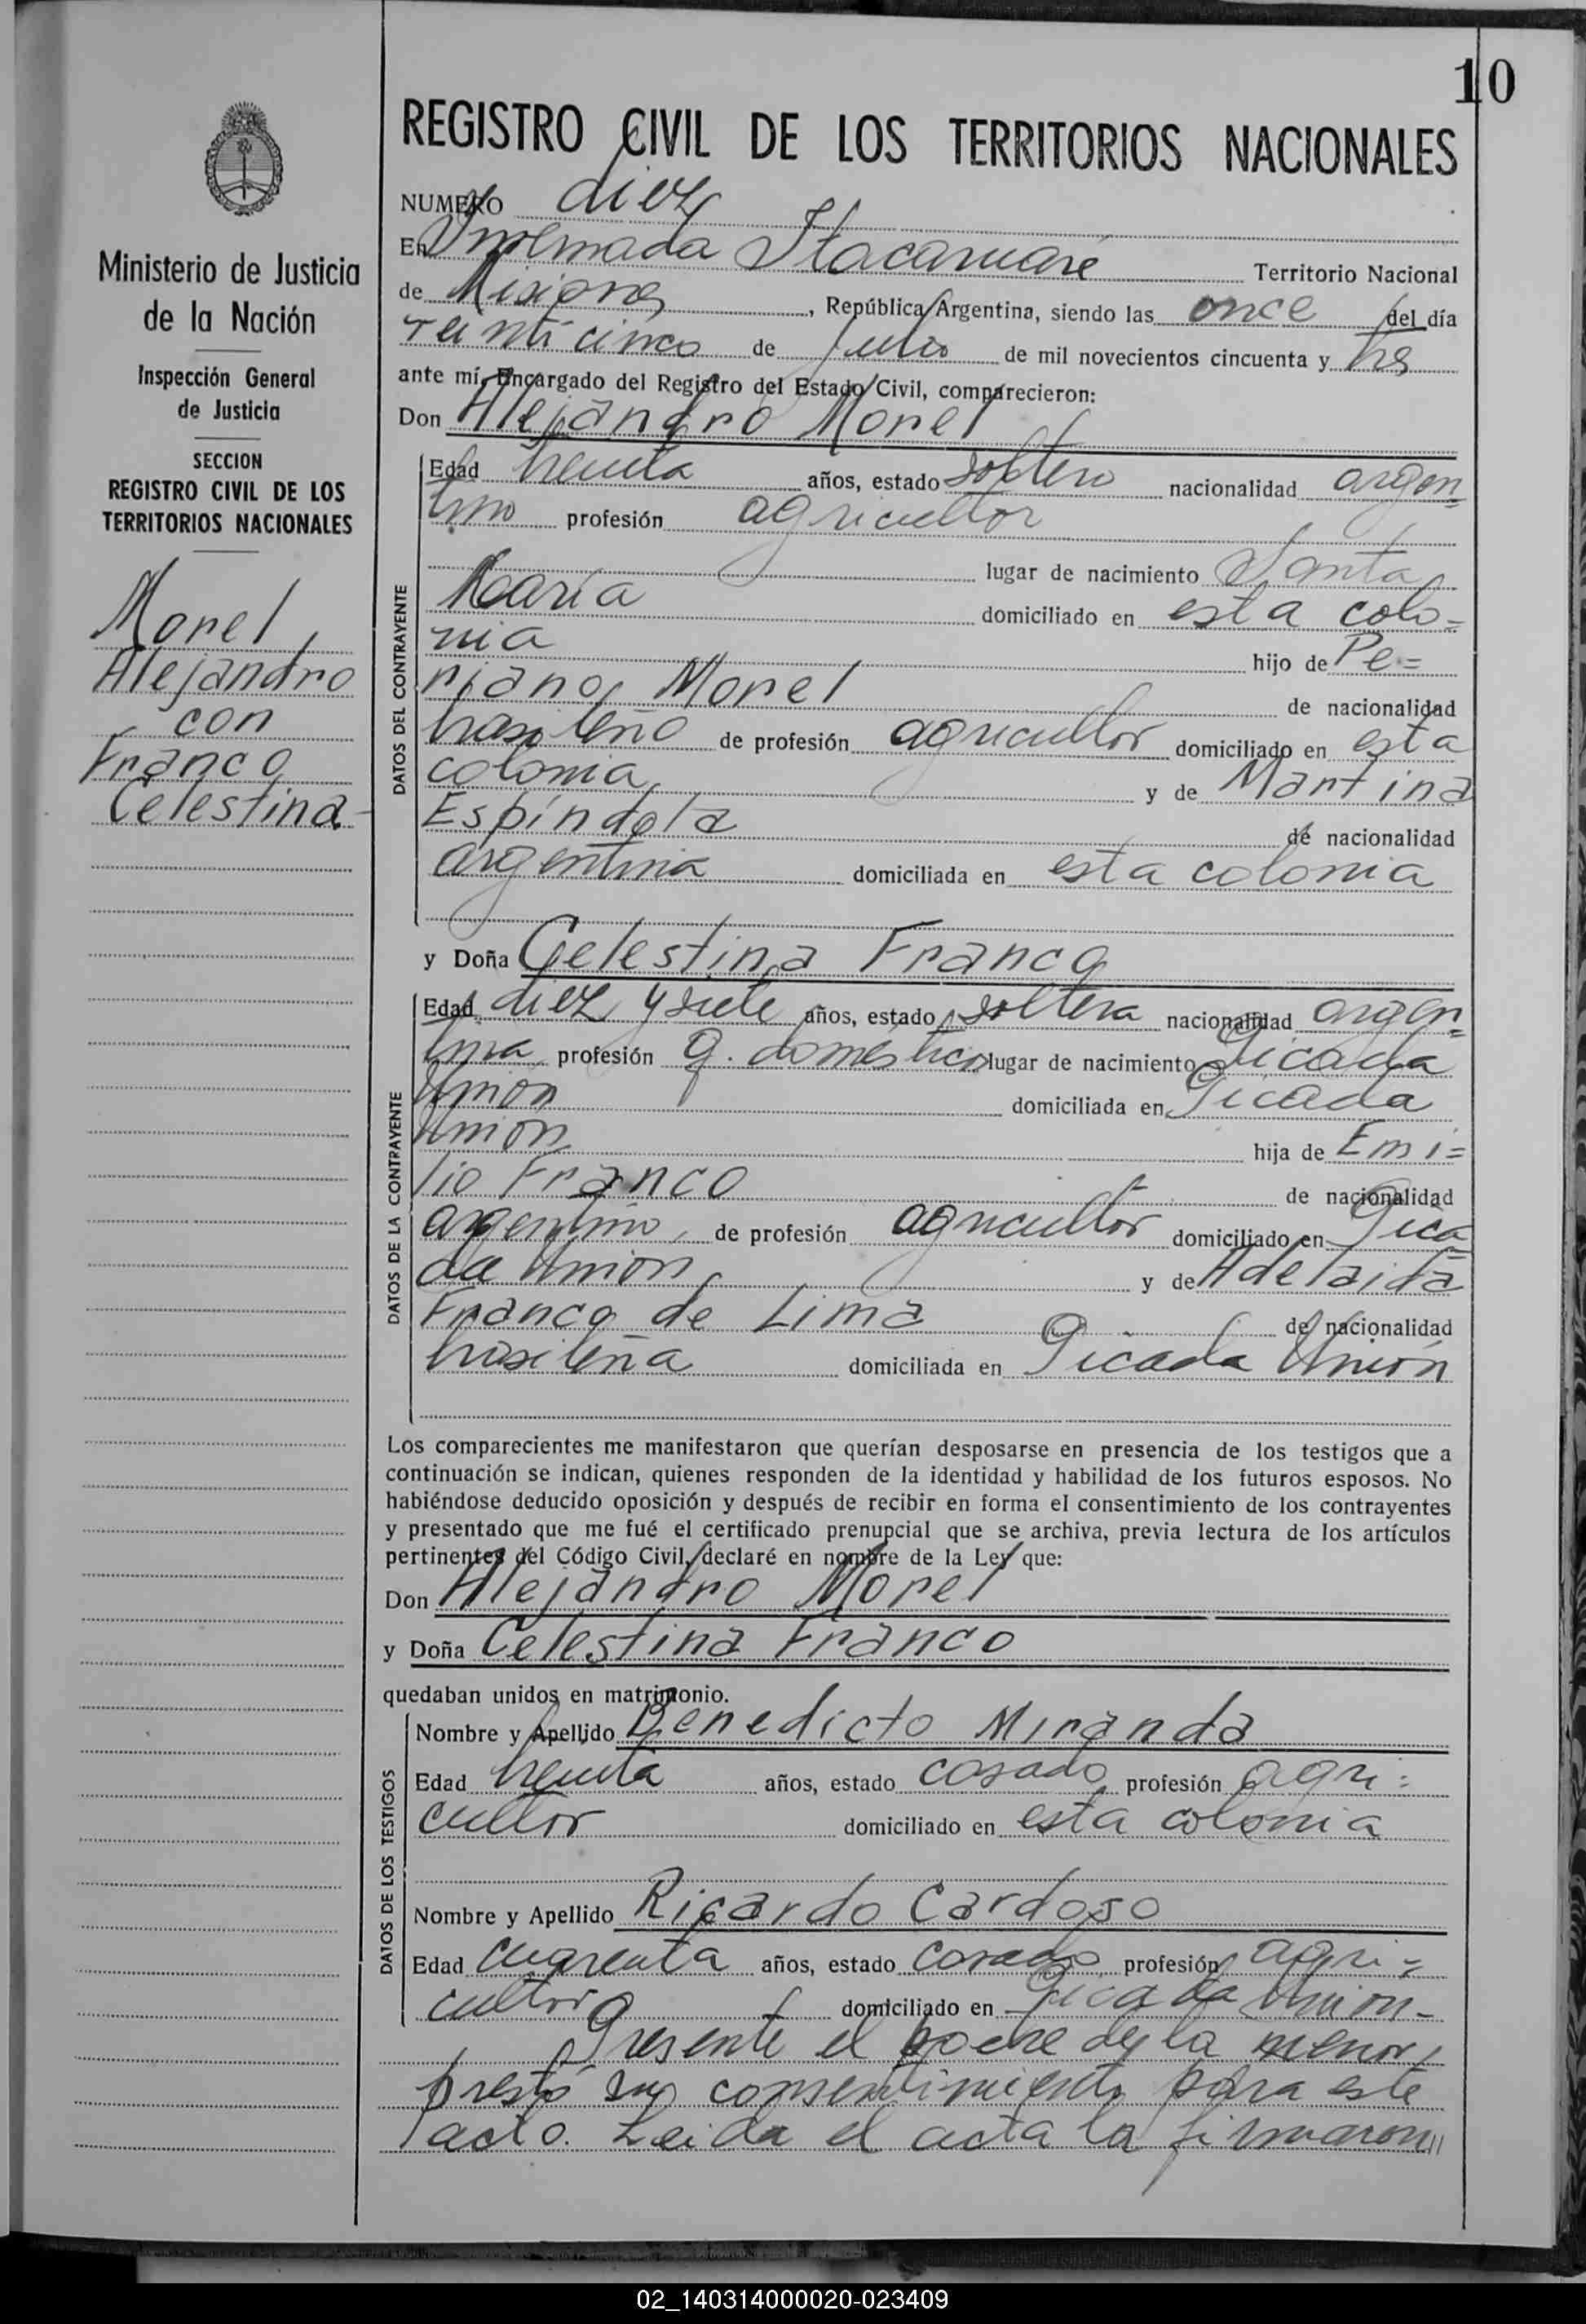 10
REGISTRO CIVIL DE LOS TERRITORIOS NACIONALES
NUMERO diez
En Itacaruaré Territorio Nacional
de Misiones, República Argentina, siendo las once del día
veinticinco de Julio de mil novecientos cincuenta y tres
ante mí, Encargado del Registro del Estado Civil, comparecieron:
Don Alejandro Morel
Edad treinta años, estado soltero nacionalidad argen=
tino profesión agricultor
lugar de nacimiento Santa
María domiciliado en esta colo=
nia hijo de Pe=
Morel de nacionalidad
brasileño de profesión agricultor domiciliado en esta
colonia y de Martina
Espíndola de nacionalidad
argentina domiciliada en esta colonia
y Doña Celestina Franco
Edad diez y siete años, estado soltera nacionalidad argen=
tina profesión q. domésticos lugar de nacimiento Picada
Unión domiciliada en Picada
Unión hija de Emi=
lio Franco de nacionalidad
argentino, de profesión agricultor domiciliado en Pica=
da Unión y de Adelaida
Franco de Lima de nacionalidad
brasileña domiciliada en Picada Unión
Los comparecientes me manifestaron que querían desposarse en presencia de los testigos que a
continuación se indican, quienes responden de la identidad y habilidad de los futuros esposos. No
habiéndose deducido oposición y después de recibir en forma el consentimiento de los contrayentes
y presentado que me fué el certificado prenupcial que se archiva, previa lectura de los artículos
pertinentes del Código Civil, declaré en nombre de la Ley que:
Don Alejandro Morel
y Doña Celestina Franco
quedaban unidos en matrimonio.
Nombre y Apellido Benedicto Miranda
Edad treinta años, estado casado profesión agri=
cultor domiciliado en esta colonia
Nombre y Apellido Ricardo Cardoso
Edad cuarenta años, estado casado profesión agri=
cultor domiciliado en Picada Unión-
Presente el padre de la menor
prestó su consentimiento para este
acto. Leida el acta la firmaron
DATOS DEL CONTRAYENTE
DATOS DE LA CONTRAYENTE
DATOS DE LOS TESTIGOS
Ministerio de Justicia
de la Nación
Inspección General
de Justicia
SECCION
REGISTRO CIVIL DE LOS
TERRITORIOS NACIONALES
Morel,
Alejandro
con
Franco
Celestina-
02_140314000020-023409